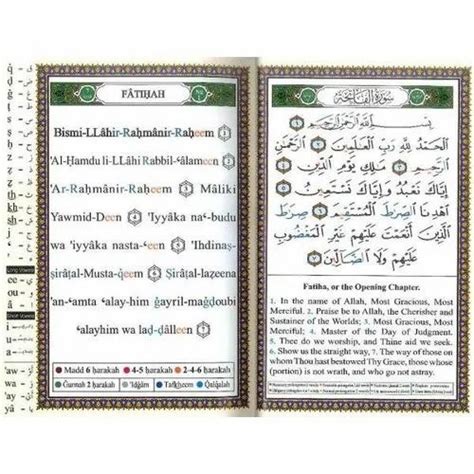 FĀTIḤAH
Bismi-LLâhir-Raḥmânir-Raḥeem 1
'Al-Ḥamdu li-LLâhi Rabbil-ʿâlameen 2
'Ar-Raḥmânir-Raḥeem 3 Mâliki
Yawmid-Deen 4 'Iyyâka naʿ-budu
wa 'iyyâka nasta-ʿeen 5 'Ihdinaṣ-
ṣirâṭal-Mustaqeem 6 Ṣirâṭal-lazeena
'an-ʿamta ʿalay-him ġayril-maġḍoubi
ʿalayhim wa laḍ-ḍâlleen 7
Madd 6 ḥarakah 4-5 ḥarakah 2-4-6 ḥarakah
Ġunnah 2 ḥarakah 'Idġâm Tafkheem Qalqalah
Long Vowels
ee
ou
â
Short Vowels
i
u
a
'aw
'ay
سورة الفاتحة
بِسْمِ ٱللَّهِ ٱلرَّحْمَٰنِ ٱلرَّحِيمِ ١
ٱلْحَمْدُ لِلَّهِ رَبِّ ٱلْعَٰلَمِينَ ٢ ٱلرَّحْمَٰنِ
ٱلرَّحِيمِ ٣ مَٰلِكِ يَوْمِ ٱلدِّينِ ٤
إِيَّاكَ نَعْبُدُ وَإِيَّاكَ نَسْتَعِينُ ٥
ٱهْدِنَا ٱلصِّرَٰطَ ٱلْمُسْتَقِيمَ ٦ صِرَٰطَ
ٱلَّذِينَ أَنْعَمْتَ عَلَيْهِمْ غَيْرِ ٱلْمَغْضُوبِ
عَلَيْهِمْ وَلَا ٱلضَّآلِّينَ ٧
Fatiha, or the Opening Chapter.
1. In the name of Allah, Most Gracious, Most
Merciful. 2. Praise be to Allah, the Cherisher and
Sustainer of the Worlds; 3. Most Gracious, Most
Merciful; 4. Master of the Day of Judgment.
5. Thee do we worship, and Thine aid we seek.
6. Show us the straight way, 7. The way of those on
Whom Thou hast bestowed Thy Grace, those whose
(portion) is not wrath, and who go not astray.